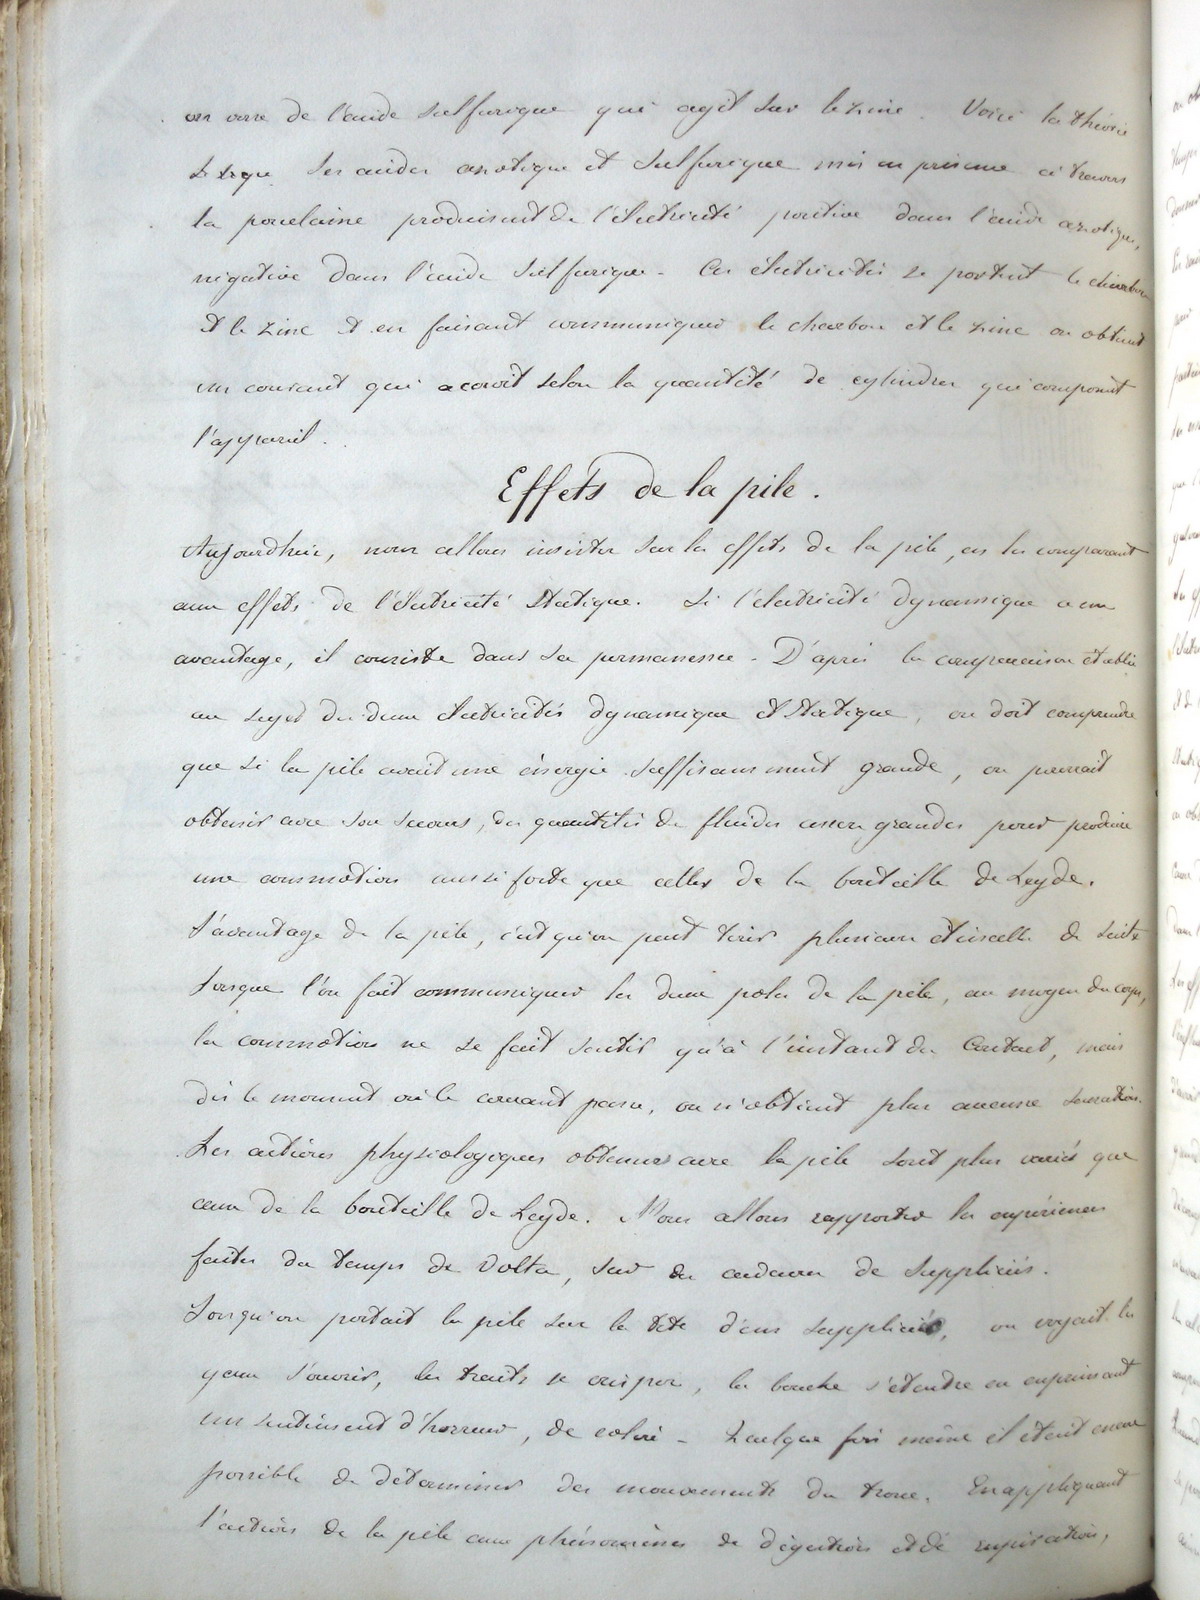 on verse de l'acide sulfurique qui agit sur le zinc. Voici la théorie
Les acides azotique et sulfurique mis en présence à travers
la porcelaine produisent de l'électricité positive dans l'acide azotique,
négative dans l'acide sulfurique. Ces électricités se portent le charbon
et le zinc et en faisant communiquer le charbon et le zinc on obtient
un courant qui accroit selon la quantité de cylindres qui composent
l'appareil.
Effets de la pile.
Aujourd'hui, nous allons insister sur les effets de la pile, en les comparant
aux effets de l'électricité statique. Si l'électricité dynamique a un
avantage, il consiste dans sa permanence. D'après la comparaison établie
au sujet des deux électricités dynamique et statique, on doit comprendre
que si la pile avait une énergie suffisamment grande, on pourrait
obtenir avec son secours, des quantités de fluides assez grandes pour produire
une commotion aussi forte que celles de la bouteille de Leyde.
L'avantage de la pile, c'est qu'on peut tirer plusieurs étincelles de suite
Lorsque l'on fait communiquer les deux poles de la pile, au moyen du corps,
la commotion ne se fait sentir qu'à l'instant du contact, mais
dès le moment où le courant passe, on n'obtient plus aucune sensation.
Les actions physiologiques obtenues avec la pile sont plus variés que
ceux de la bouteille de Leyde. Nous allons rapporter les expériences
faites du temps de Volta, sur des cadavres de suppliciés.
Lorsqu'on portait la pile sur la tête d'un supplicié, on voyait les
yeux s'ouvrir, les traits se crisper, la bouche s'étendre en exprimant
un sentiment d'horreur, de colère. Quelque fois même il était encore
possible de déterminer des mouvements du tronc. En appliquant
l'action de la pile aux phénomènes de digestion et de respiration,